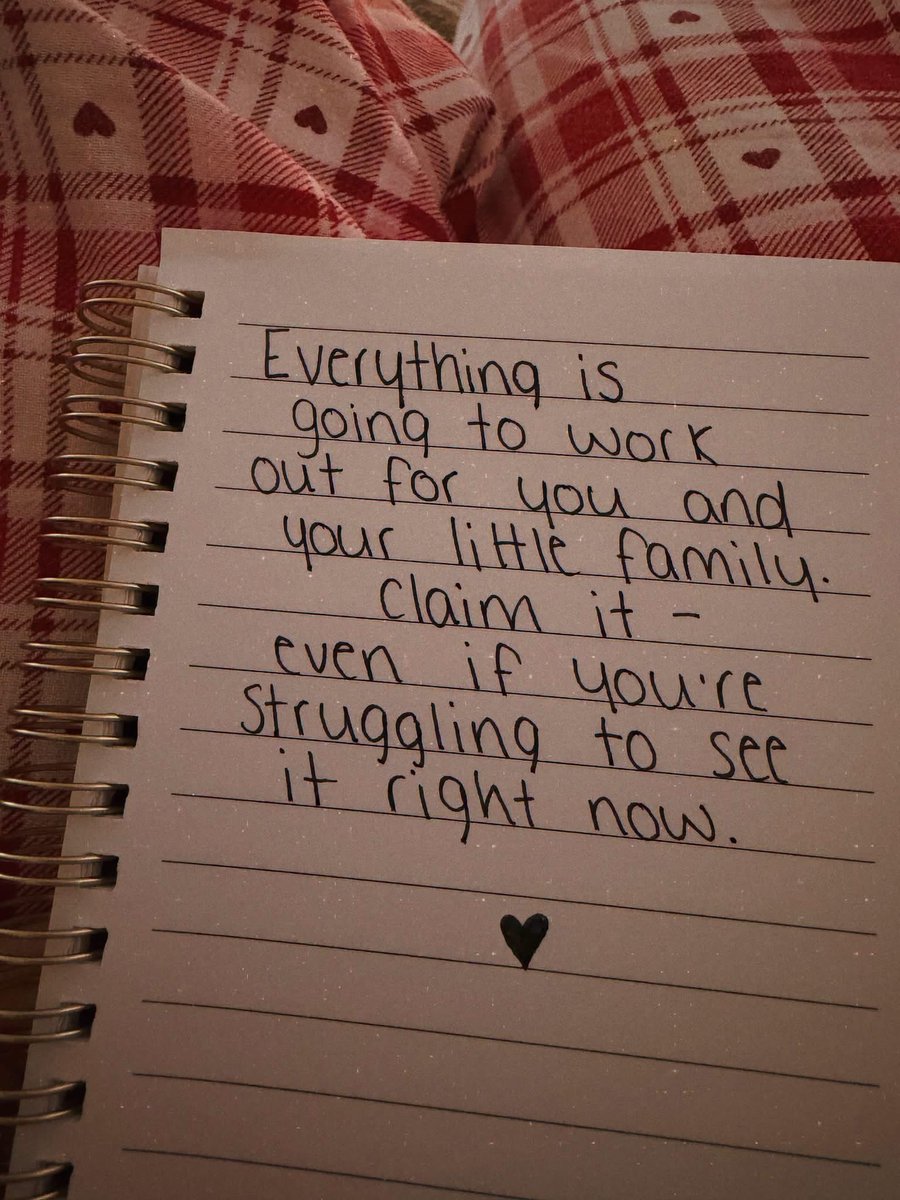 Everything is
going to work
out for you and
your little family.
Claim it -
even if you're
struggling to see
it right now.